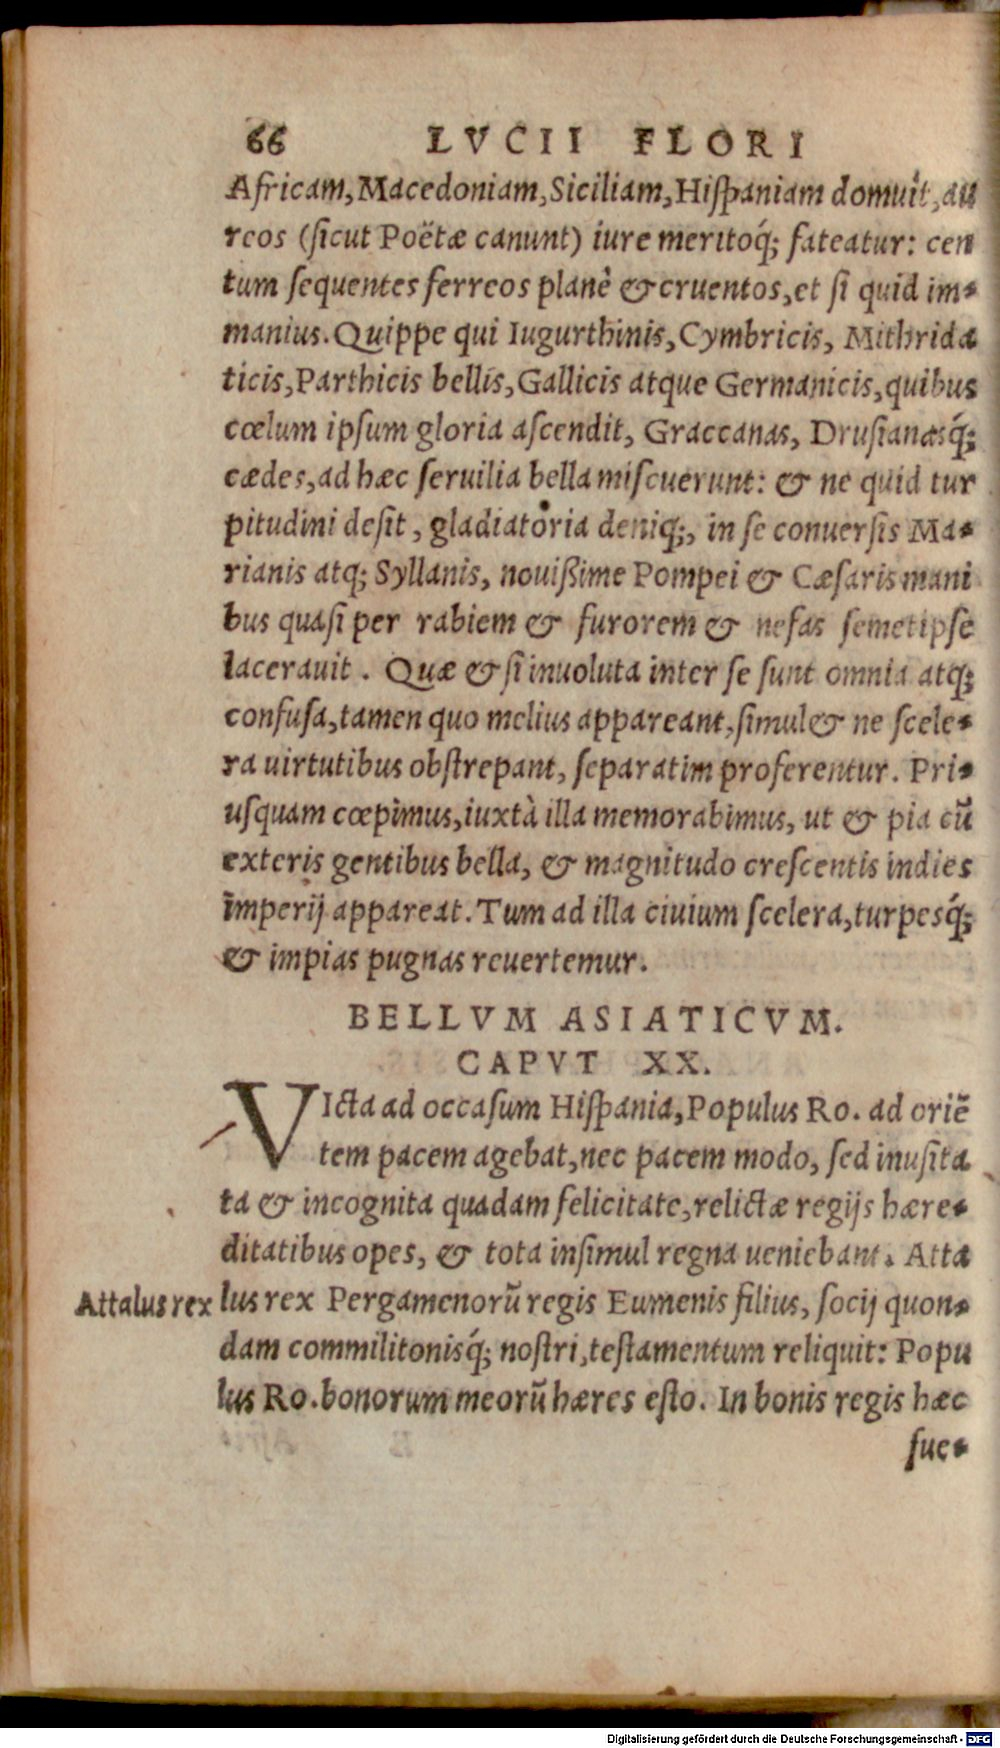 66 LVCII FLORI
Africam, Macedoniam, Siciliam, Hiſpaniam domuit, au
reos (ſicut Poëtæ canunt) iure meritoq́; fateatur: cen
tum ſequentes ferreos planè & cruentos, et ſi quid im-
manius. Quippe qui Iugurthinis, Cymbricis, Mithrida
ticis, Parthicis bellis, Gallicis atque Germanicis, quibus
cœlum ipſum gloria aſcendit, Graccanas, Druſianasq́;
cædes, ad hæc ſeruilia bella miſcuerunt: & ne quid tur
pitudini deſit, gladiatoria deniq;, in ſe conuerſis Ma-
rianis atq; Syllanis, nouißime Pompei & Cæſaris mani
bus quaſi per rabiem & furorem & nefas ſemetipſe
lacerauit. Quæ & ſi inuoluta inter ſe ſunt omnia atq;
confuſa, tamen quo melius appareant, ſimul & ne ſcele-
ra uirtutibus obſtrepant, ſeparatim proferentur. Pri-
uſquam cœpimus, iuxtà illa memorabimus, ut & pia cū
exteris gentibus bella, & magnitudo creſcentis indies
imperij appareat. Tum ad illa ciuium ſcelera, turpesq́;
& impias pugnas reuertemur.
BELLVM ASIATICVM.
CAPVT XX.
VIcta ad occaſum Hiſpania, Populus Ro. ad oriē
tem pacem agebat, nec pacem modo, ſed inuſita
ta & incognita quadam felicitate, relictæ regijs hære-
ditatibus opes, & tota inſimul regna ueniebant. Atta
Attalus rex lus rex Pergamenorū regis Eumenis filius, ſocij quon-
dam commilitonisq́; noſtri, teſtamentum reliquit: Popu
lus Ro. bonorum meorū hæres eſto. In bonis regis hæc
fue-
Digitalisierung gefördert durch die Deutsche Forschungsgemeinschaft - DFG